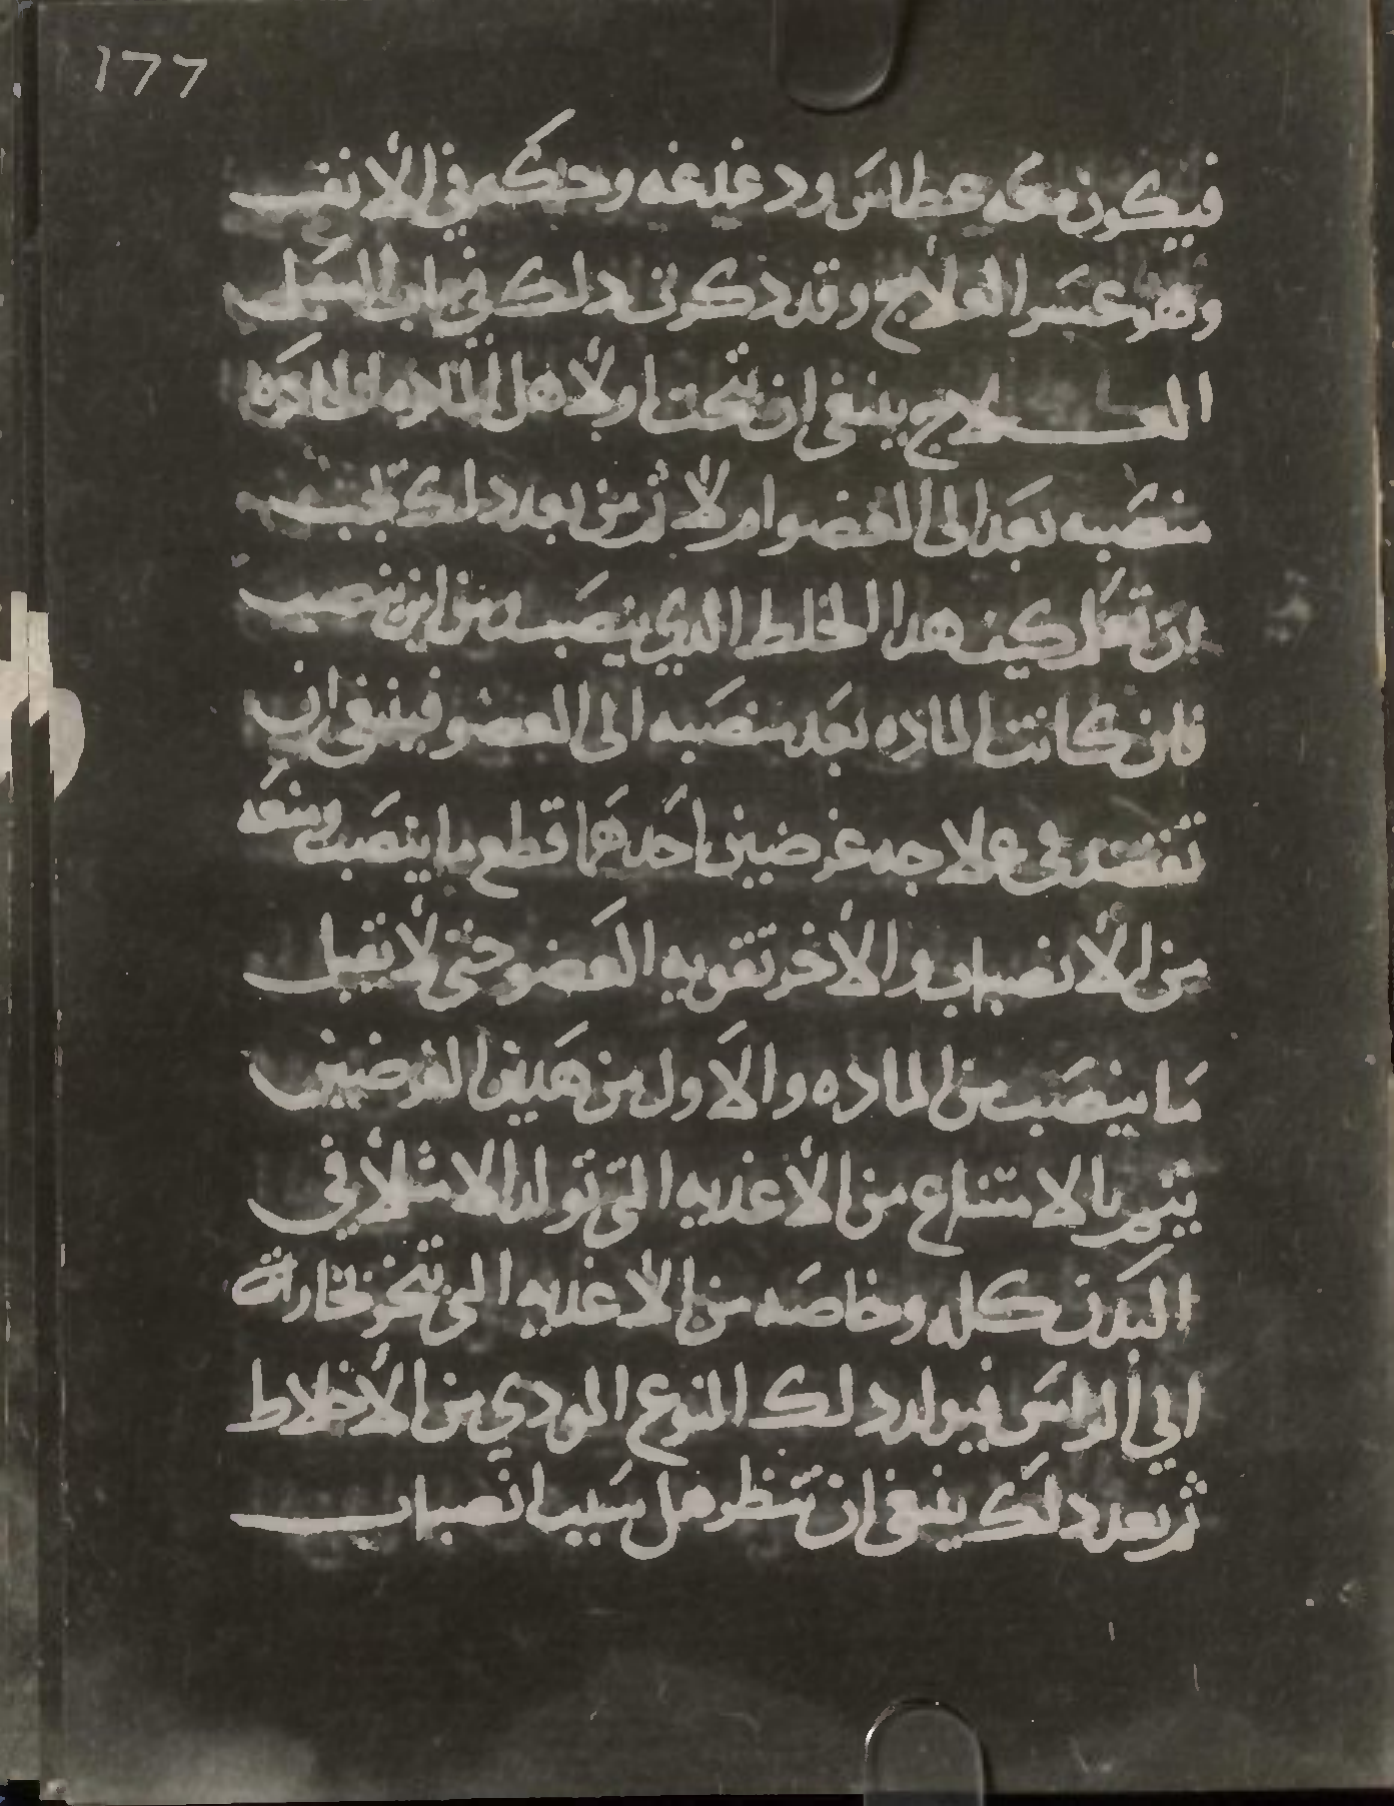 ١٦٦
فيكون معه عطاس ودغدغه وحكه في الانف
وهو عسر العلاج وقد ذكرنى دلك في باب السبل
العلاج ينبغى ان تبحث اولا هل الماده الحاده
منصبه بعد الى العضو ام لا ثم من بعد دلك تبحث
ان تعلم كيف هدا الخلط الدي ينصب ومن اين ينصب
فان كانت الماده بعد منصبه الى العضو فينبغى ان
تقصد فى علاجه غرضين احدهما قطع ما ينصب ومنعه
من الانصباب والاخر تقويه العضو حتى لا يقبل
ما ينصب من الماده والاول من هدين الغرضين
يتم بالامتناع من الاغديه التى تولد الامتلا في
البدن كله وخاصه من الاغديه التى تبخر بخاراته
الي الراس فيولد دلك النوع المودي من الاخلاط
ثم بعد دلك ينبغى ان تنظر هل سبب انصباب